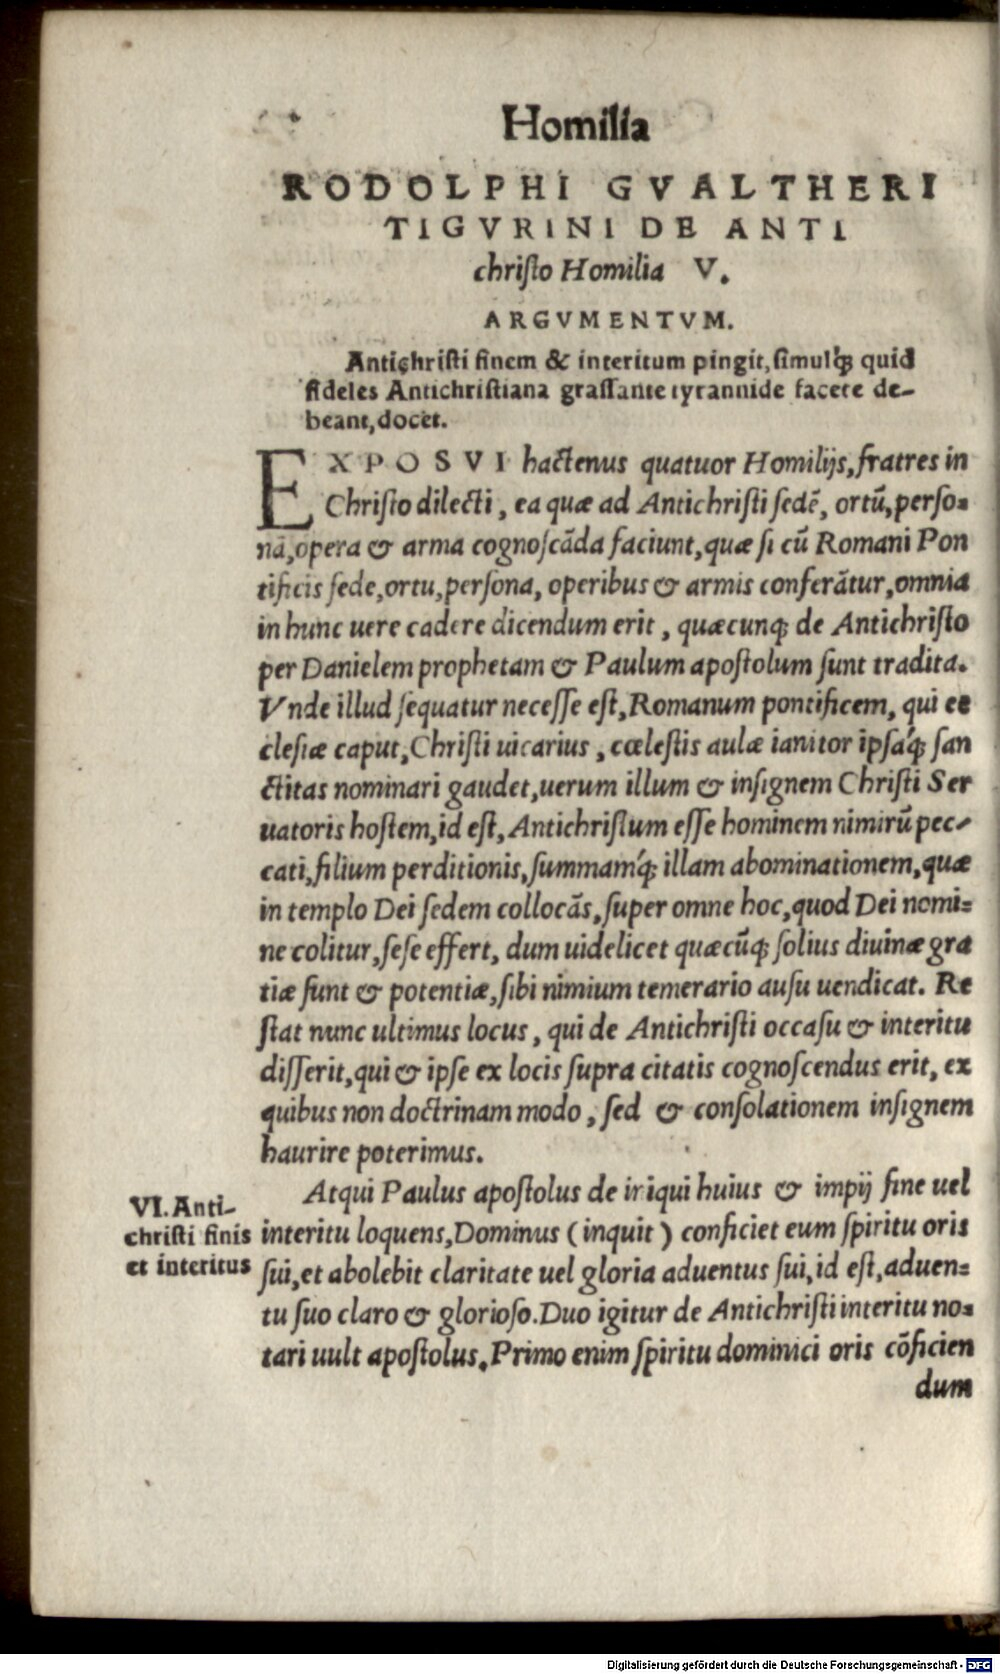 Homilia
RODOLPHI GVALTHERI
TIGVRINI DE ANTI
christo Homilia V.
ARGVMENTVM.
Antichristi finem & interitum pingit, simulq́; quid
fideles Antichristiana grassante tyrannide facere de-
beant, docet.
EXPOSVI hactenus quatuor Homilijs, fratres in
Christo dilecti, ea quæ ad Antichristi sedẽ, ortũ, perso-
nã, opera & arma cognoscãda faciunt, quæ si cũ Romani Pon
tificis sede, ortu, persona, operibus & armis conferãtur, omnia
in hunc uere cadere dicendum erit, quæcunq; de Antichristo
per Danielem prophetam & Paulum apostolum sunt tradita.
Vnde illud sequatur necesse est, Romanum pontificem, qui ec
clesiæ caput, Christi uicarius, cœlestis aulæ ianitor ipsáq; san
ctitas nominari gaudet, uerum illum & insignem Christi Ser
uatoris hostem, id est, Antichristum esse hominem nimirũ pec-
cati, filium perditionis, summamq́; illam abominationem, quæ
in templo Dei sedem collocãs, super omne hoc, quod Dei nomi-
ne colitur, sese effert, dum uidelicet quæcũq; solius diuinæ gra
tiæ sunt & potentiæ, sibi nimium temerario ausu uendicat. Re
stat nunc ultimus locus, qui de Antichristi occasu & interitu
disserit, qui & ipse ex locis supra citatis cognoscendus erit, ex
quibus non doctrinam modo, sed & consolationem insignem
haurire poterimus.
Atqui Paulus apostolus de iriqui huius & impij fine uel
VI. Anti-
christi finis
et interitus
interitu loquens, Dominus (inquit) conficiet eum spiritu oris
sui, et abolebit claritate uel gloria aduentus sui, id est, aduen-
tu suo claro & glorioso. Duo igitur de Antichristi interitu no-
tari uult apostolus. Primo enim spiritu dominici oris cõficien
dum
Digitalisierung gefördert durch die Deutsche Forschungsgemeinschaft - DFG